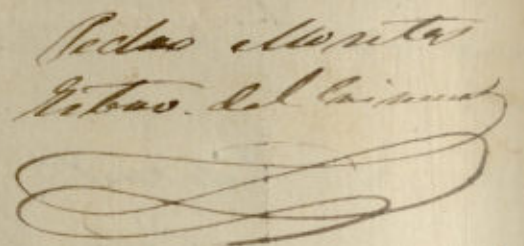 Pedro Moreta
Esbno. del Crimen